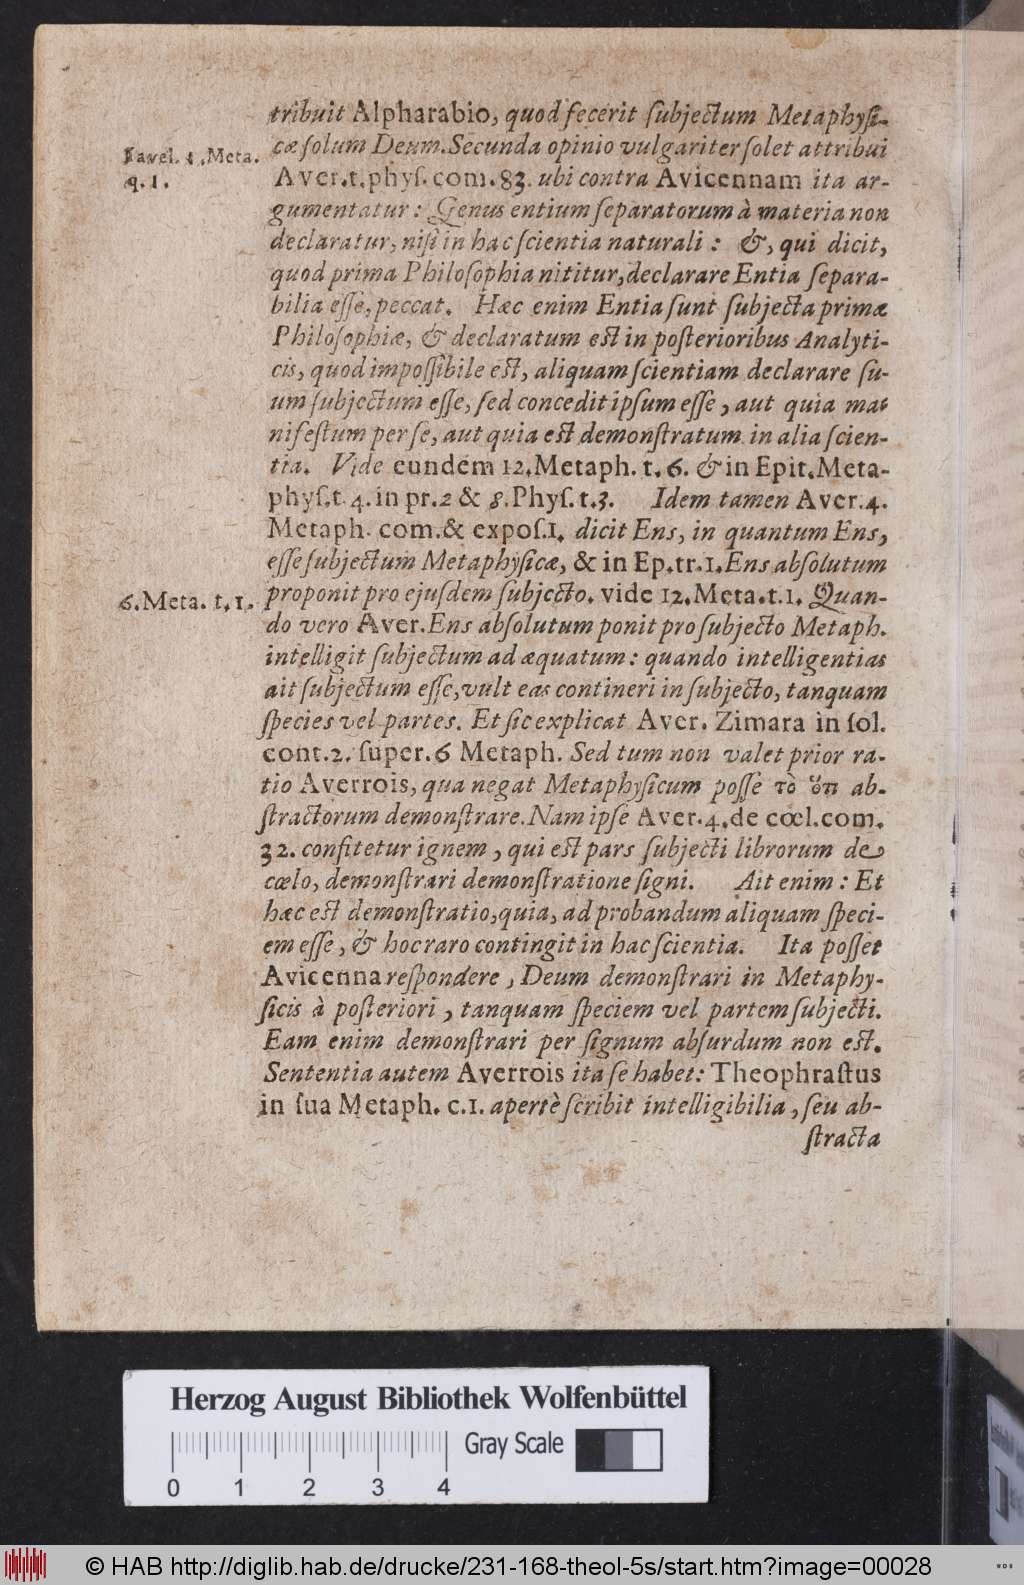 tribuit Alpharabio, quod fecerit ſubjectum Metaphyſi-
cæ ſolum Deum. Secunda opinio vulgariter ſolet attribui
Javel. 1. Meta.
q. 1.
Aver. t. phyſ. com. 83. ubi contra Avicennam ita ar-
gumentatur: Genus entium ſeparatorum à materia non
declaratur, niſi in hac ſcientia naturali: &, qui dicit,
quod prima Philoſophia nititur, declarare Entia ſepara-
bilia eſſe, peccat. Hæc enim Entia ſunt ſubjecta primæ
Philoſophiæ, & declaratum eſt in poſterioribus Analyti-
cis, quod impoſſibile eſt, aliquam ſcientiam declarare ſu-
um ſubjectum eſſe, ſed concedit ipſum eſſe, aut quia ma-
nifeſtum per ſe, aut quia eſt demonſtratum in alia ſcien-
tia. Vide eundem 12. Metaph. t. 6. & in Epit. Meta-
phyſ. t. 4. in pr. 2 & 8. Phyſ. t. 3. Idem tamen Aver. 4.
Metaph. com. & expoſ. 1. dicit Ens, in quantum Ens,
eſſe ſubjectum Metaphyſicæ, & in Ep. tr. 1. Ens abſolutum
6. Meta. t. 1.
proponit pro ejuſdem ſubjecto. vide 12. Meta. t. 1. Quan-
do vero Aver. Ens abſolutum ponit pro ſubjecto Metaph.
intelligit ſubjectum adæquatum: quando intelligentias
ait ſubjectum eſſe, vult eas contineri in ſubjecto, tanquam
ſpecies vel partes. Et ſic explicat Aver. Zimara in ſol.
cont. 2. ſuper. 6 Metaph. Sed tum non valet prior ra-
tio Averrois, qua negat Metaphyſicum poſſe τὸ ὅτι ab-
ſtractorum demonſtrare. Nam ipſe Aver. 4. de cœl. com.
32. confitetur ignem, qui eſt pars ſubjecti librorum de
cœlo, demonſtrari demonſtratione ſigni. Ait enim: Et
hæc eſt demonſtratio, quia, ad probandum aliquam ſpeci-
em eſſe, & hoc raro contingit in hac ſcientia. Ita poſſet
Avicenna reſpondere, Deum demonſtrari in Metaphy-
ſicis à poſteriori, tanquam ſpeciem vel partem ſubjecti.
Eam enim demonſtrari per ſignum abſurdum non eſt.
Sententia autem Averrois ita ſe habet: Theophraſtus
in ſua Metaph. c. 1. apertè ſcribit intelligibilia, ſeu ab-
ſtracta
Herzog August Bibliothek Wolfenbüttel
Gray Scale
0 1 2 3 4
© HAB http://diglib.hab.de/drucke/231-168-theol-5s/start.htm?image=00028